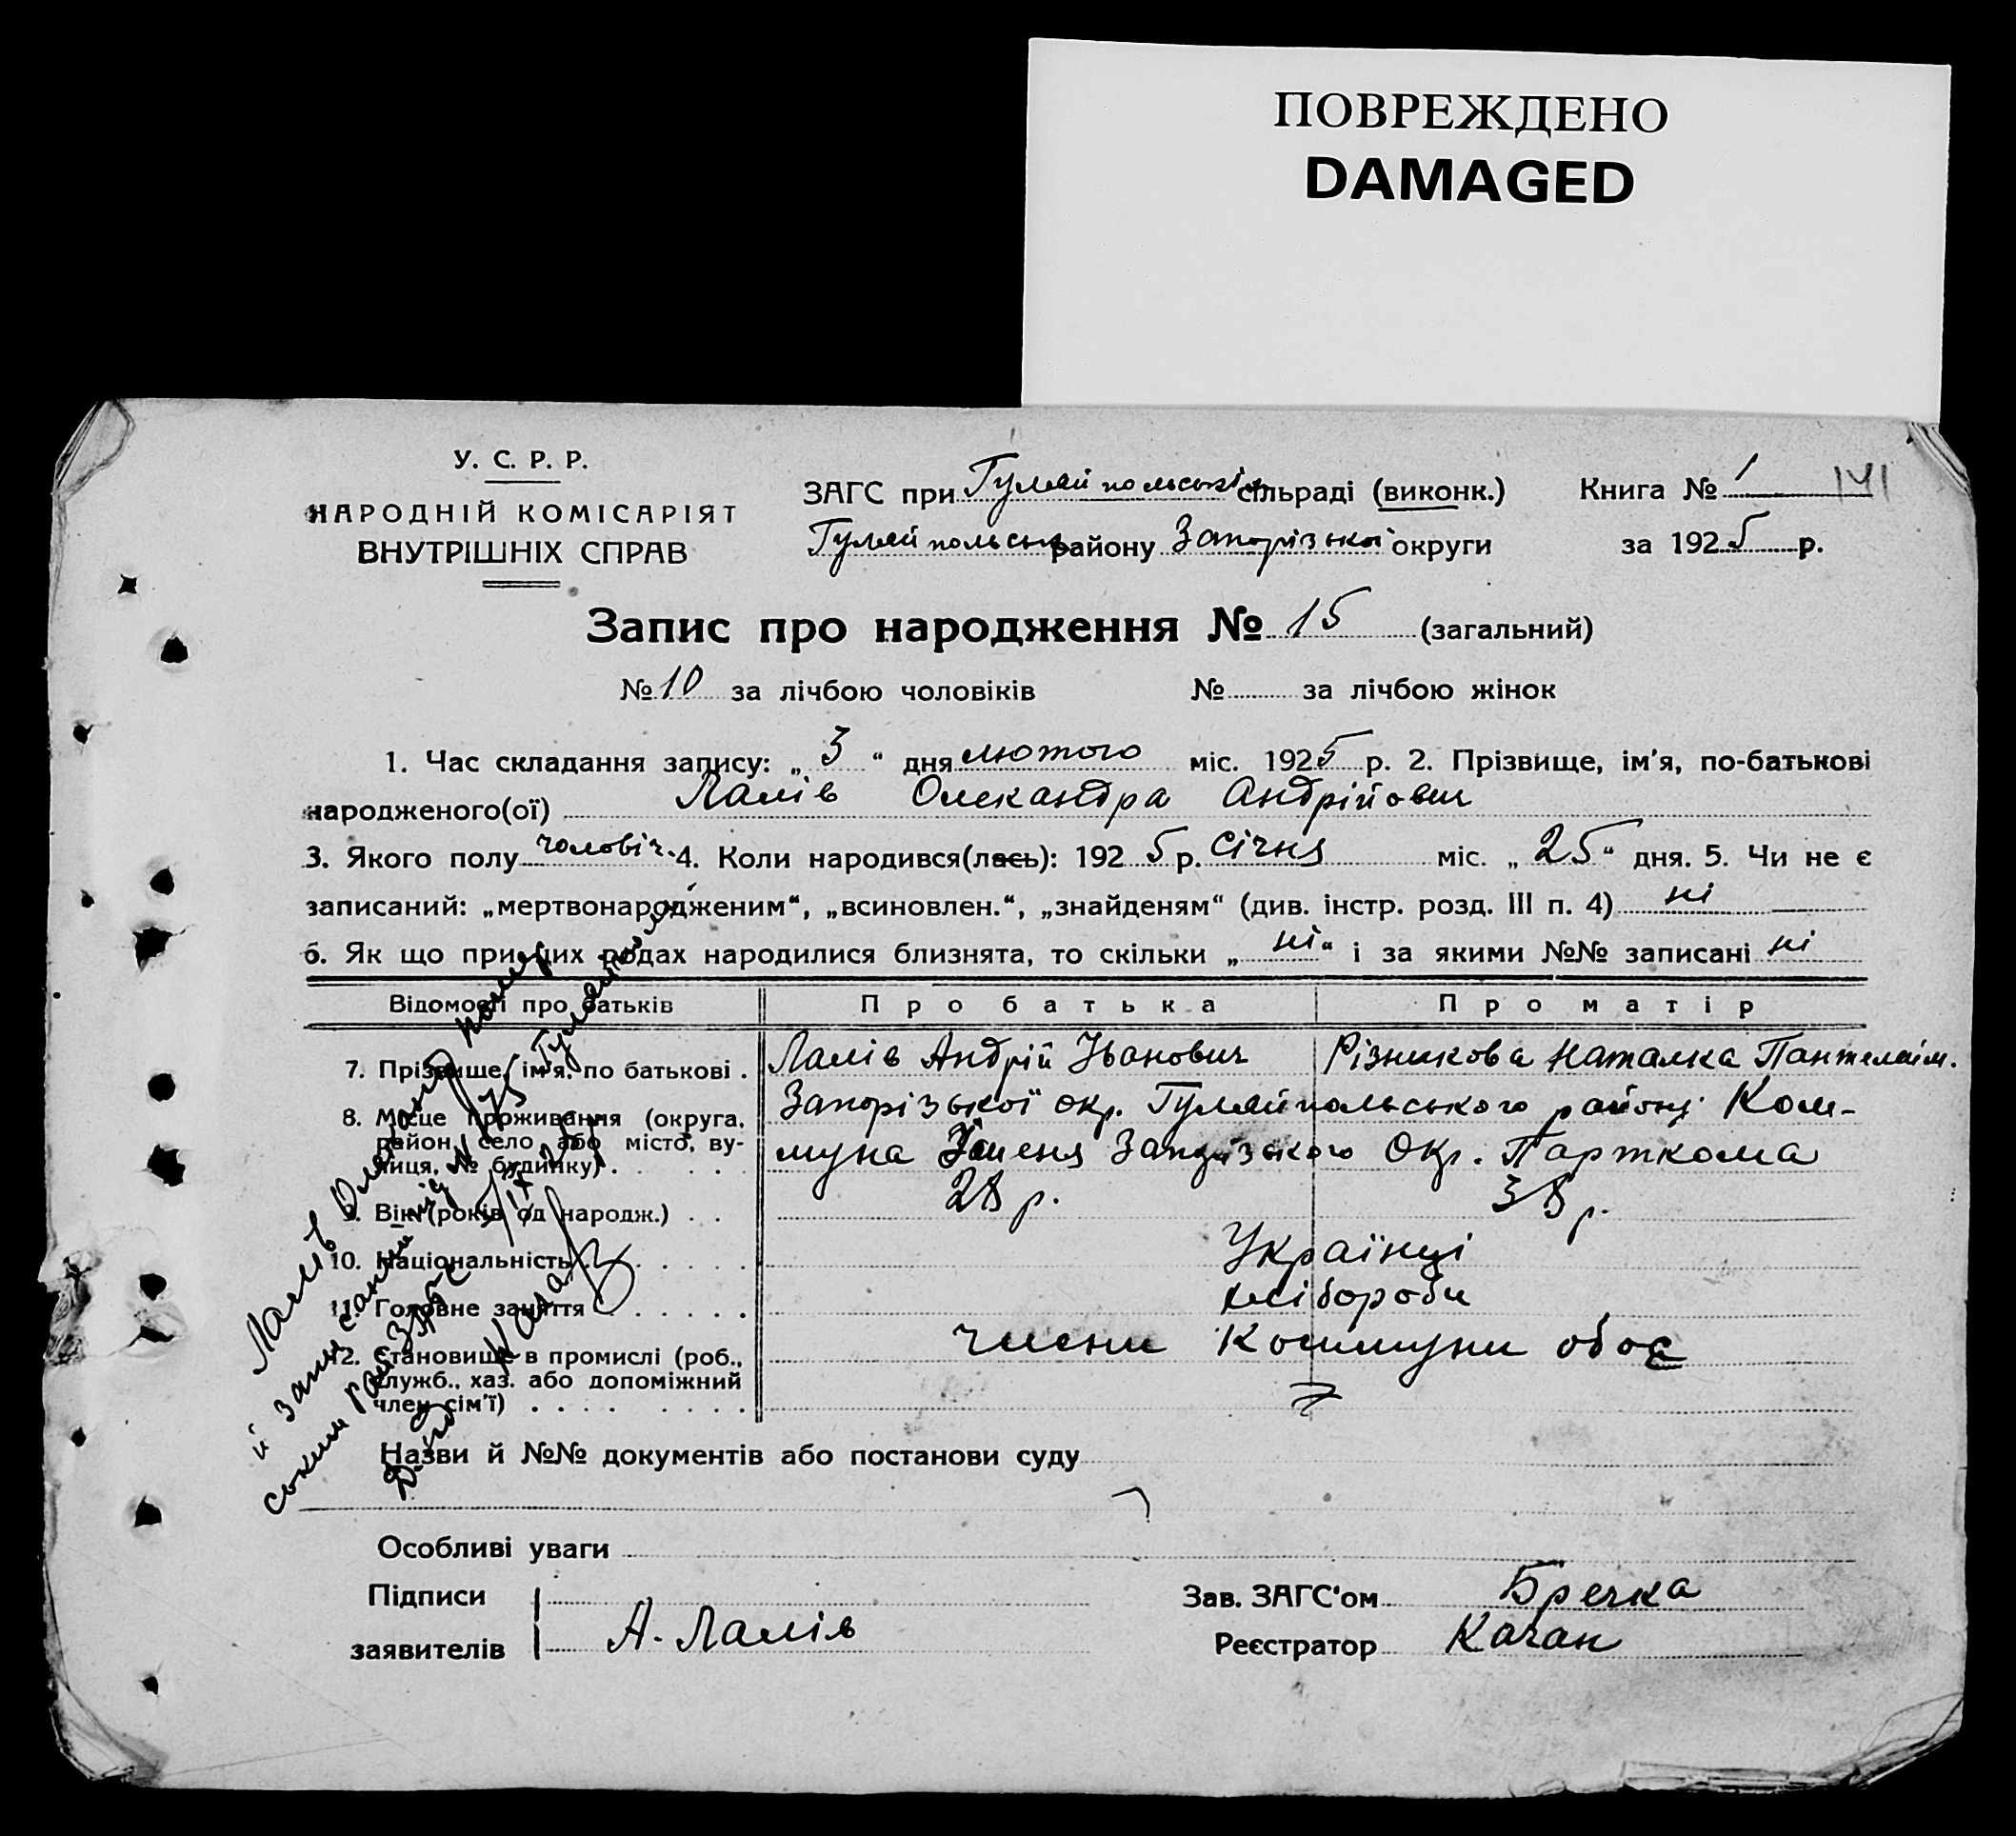 ПОВРЕЖДЕНО
DAMAGED
У. С. Р. Р.
НАРОДНІЙ КОМІСАРІЯТ
ВНУТРІШНІХ СПРАВ
ЗАГС при Гуляйпольські сільраді (виконк.)
Гуляйпольськ району Запорізької округи
Книга № 1
141
за 1925 р.
Запис про народження № 15 (загальний)
№ 10 за лічбою чоловіків № за лічбою жінок
1. Час складання запису: „ 3 “ дня лютого міс. 1925 р. 2. Прізвище, ім'я, по-батькові
народженого(ої) Ламів Олександра Андрійович
3. Якого полу чоловіч. 4. Коли народився(лась): 1925 р. січня міс. „ 25 “ дня. 5. Чи не є
записаний: „мертвонародженим“, „всиновлен.“, „знайденям“ (див. інстр. розд. III п. 4) ні
6. Як що при цих родах народилися близнята, то скільки „ ні “ і за якими №№ записані ні
Відомості про батьків Про батька Про матір
7. Прізвище, ім'я, по батькові . Ламів Андрій Іванович Різникова Наталка Пантелейм.
8. Місце проживання (округа, район, село або місто, вулиця, № будинку) . . . . Запорізької окр. Гуляйпольського району Ком-
муна Імення Запорізького Окр. Парткома
9. Вік (років од народж.) . . 28 р. 38 р.
10. Національність . . . . . . Українці
11. Головне заняття . . . . . . хлібороби
12. Становище в промислі (роб., служб., хаз. або допоміжний член сім'ї) . . . . . . . . члени Коммуни обоє
Назви й №№ документів або постанови суду
Особливі уваги
Підписи
заявителів А. Ламів
Зав. ЗАГС'ом Бречка
Реєстратор Качан
Ламів Олександ помер
й запис
ським